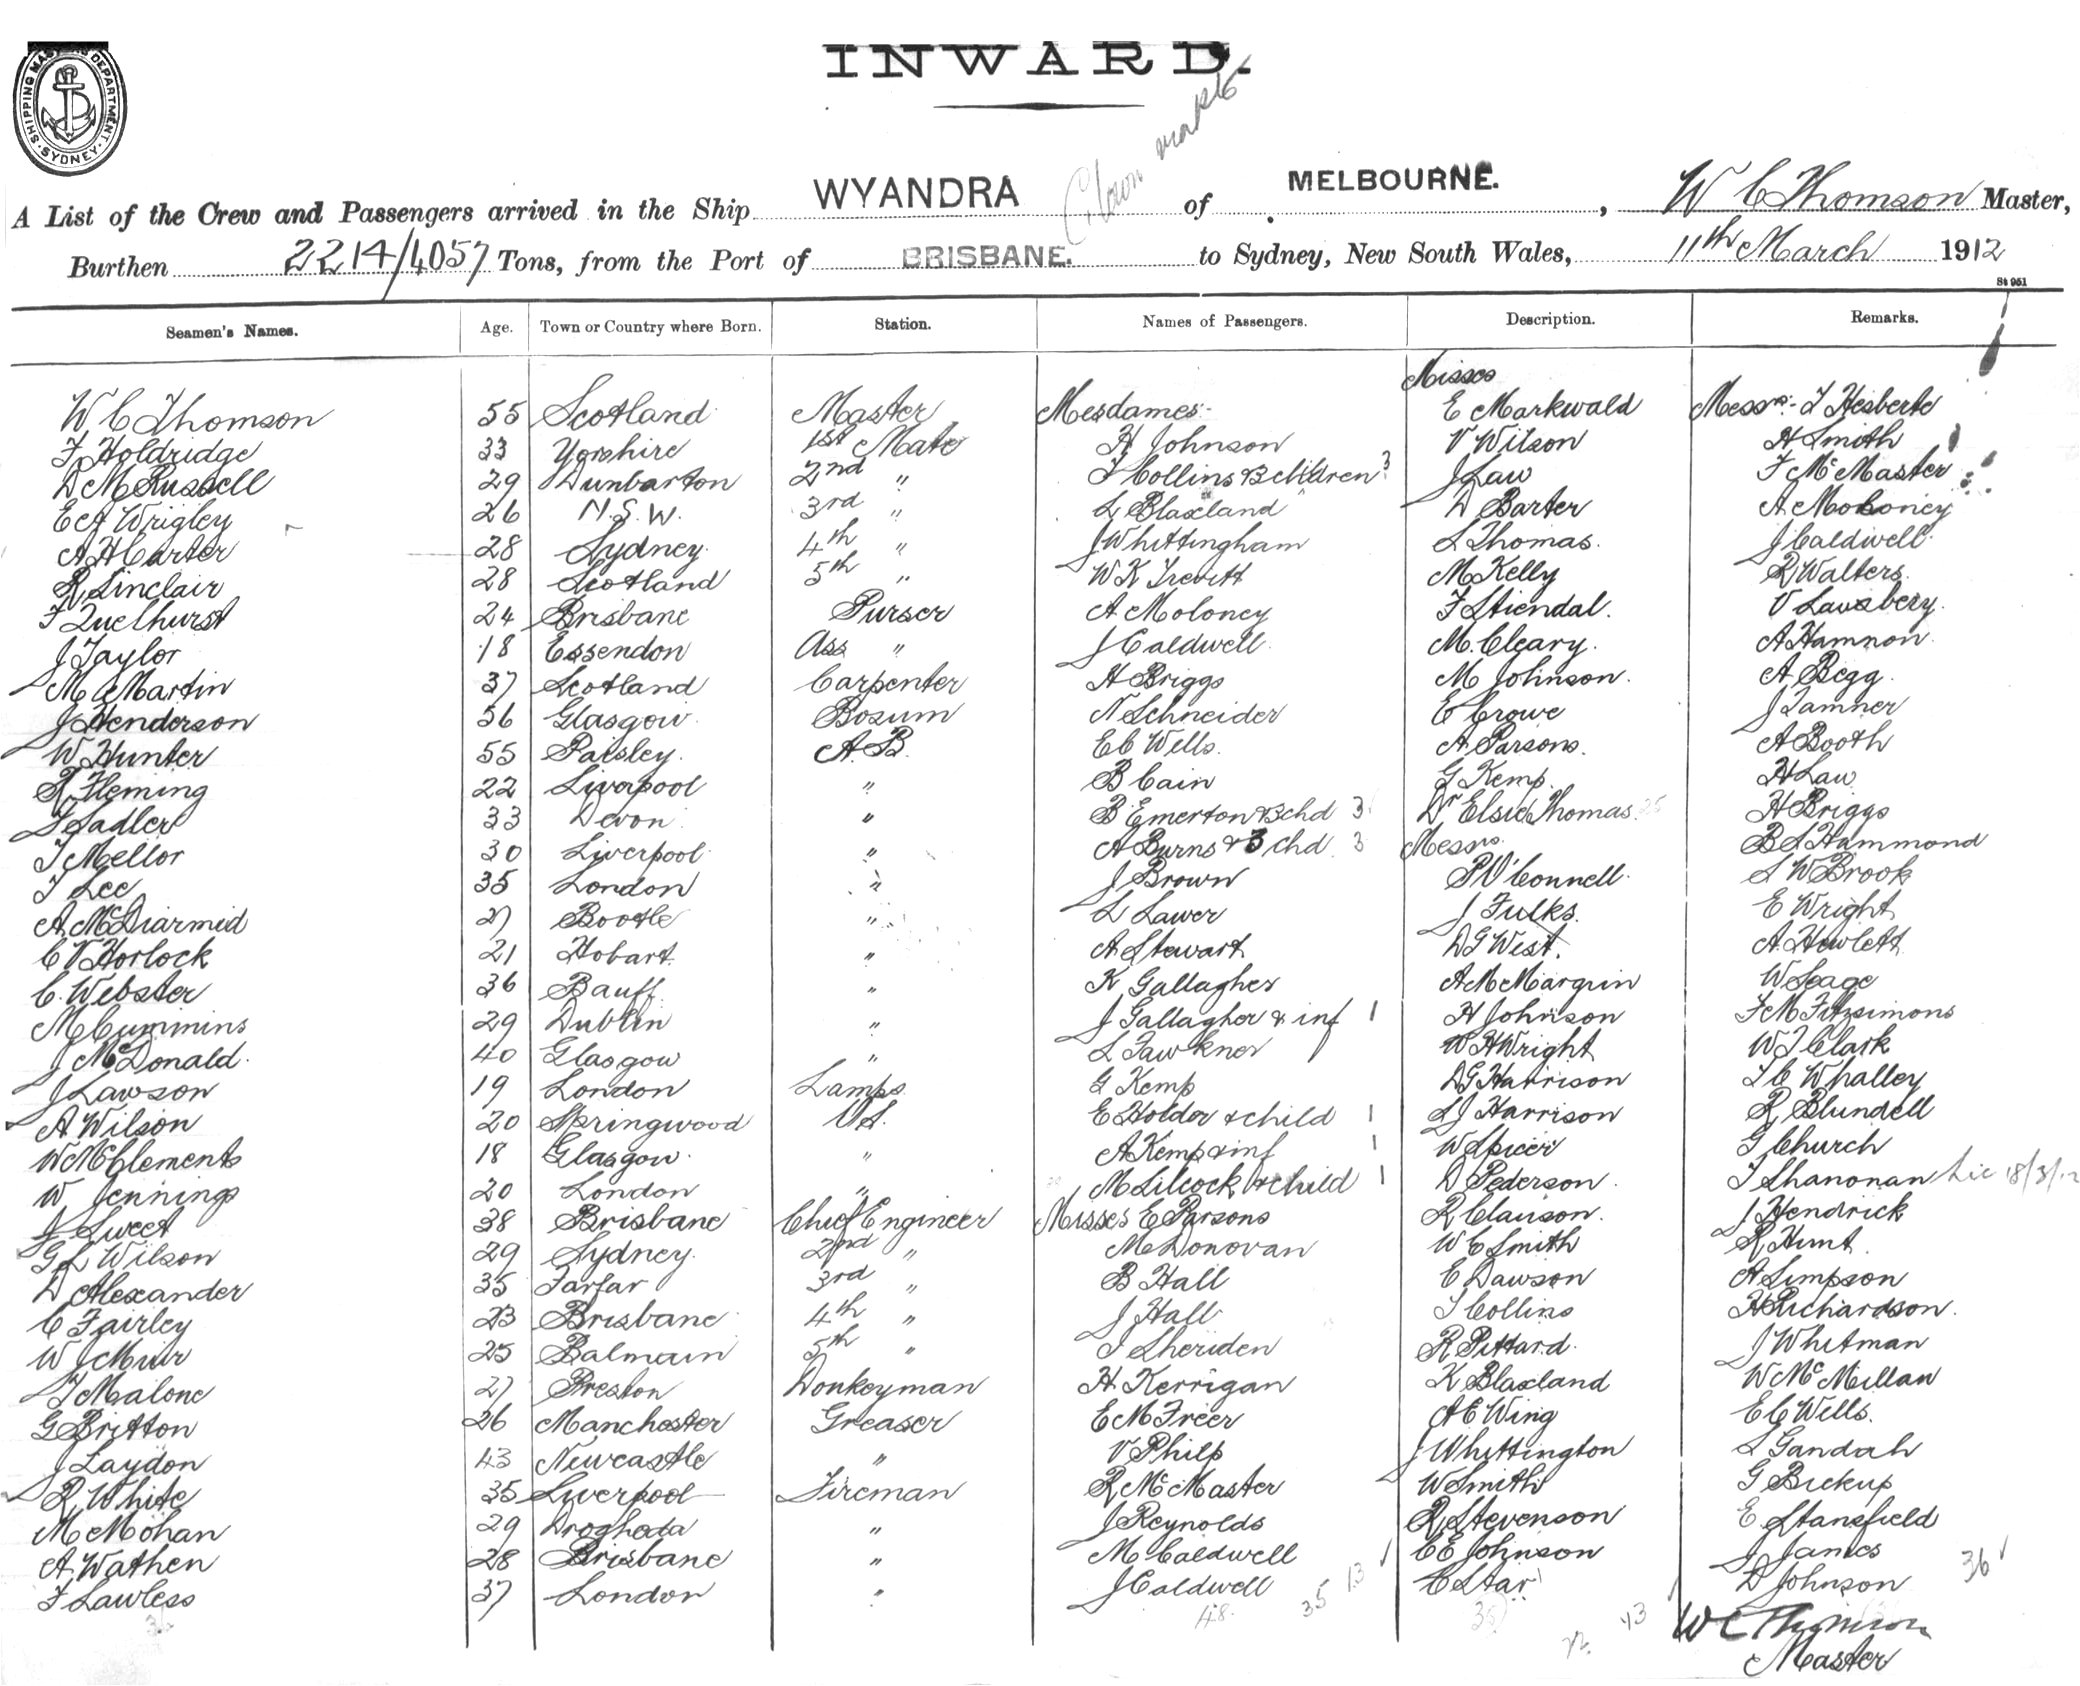 SHIPPING MASTERS DEPARTMENT. SYDNEY.
INWARD.
A List of the Crew and Passengers arrived in the Ship WYANDRA of MELBOURNE. , W C Thomson Master,
Burthen 2214/4057 Tons, from the Port of BRISBANE. to Sydney, New South Wales, 11th March 1912
St 951
Seamen's Names. Age. Town or Country where Born. Station. Names of Passengers. Description. Remarks.
Misses
W C Thomson 55 Scotland Master Mesdames:- E Markwald Messrs:-
F Holdridge 33 Yorshire 1st Mate H Johnson V Wilson H Smith
D M Russell 29 Dunbarton 2nd " T Collins & 3 children 3 J Law F McMaster
E A Wrigley 26 N.S.W. 3rd " L Blaxland D Barter A Moloney
A H Carter 28 Sydney 4th " J Whittingham L Thomas. J Caldwell
R Sinclair 28 Scotland 5th " W K Trevitt M Kelly R Walters.
F Quelhurst 24 Brisbane Purser A Moloney F Stiendal. V Lawsbery.
J Taylor 18 Essendon Ass " J Caldwell M. Cleary. A Hamnon
M McMartin 37 Scotland Carpenter H Briggs M Johnson. A Begg.
J Henderson 56 Glasgow Bosum N Schneider E Crowe J Tamner
W Hunter 55 Paisley. A.B. E C Wells. A Parsons. A Booth
R Fleming 22 Liverpool " B Cain G Kemp. H Law
T Sadler 33 Devon " B Emerton & 3 chd 3 Dr Elsie Thomas. H Briggs
T Mellor 30 Liverpool " A Burns & 3 chd 3 Messrs. B S Hammond
T Lee 35 London " J Brown P O'Connell. S W Brook
A McDiarmid 27 Bootle " L Lawer J Fulks. E Wright
C V Horlock 21 Hobart. " A Stewart D G West. A Hewlett
C. Webster 36 Bauff. " K Gallagher A McMarquin W Seage
M Cummins 29 Dublin " J Gallagher & inf 1 H Johnson F M Fitzsimons
J McDonald. 40 Glasgow " L Fawkner W H Wright W J Clark
J Lawson 19 London Lamps G Kemp D G Harrison T C Whalley
A Wilson 20 Springwood O.S. E Holder & child 1 L J Harrison R Blundell
W McClements 18 Glasgow. " A Kemp & inf 1 W Spicer G Church
W Jennings 20 London " M Silcock & child 1 D Pederson T Shanonan 18/3/12
J Sweet 38 Brisbane Chief Engineer Misses E Parsons R Clauson. J Hendrick
G L Wilson 29 Sydney. 2nd " M Donovan W C Smith R Hunt
D Alexander 35 Farfar 3rd " B Hall E Dawson A Simpson
C Fairley 23 Brisbane 4th " J Hall T Collins H Richardson.
W J Muir 25 Balmain 5th " T Sheriden R Pittard. J Whitman
T Malone 27 Preston Donkeyman H Kerrigan K Blaxland W McMillan
G Britton 26 Manchester Greaser E M Freer A E Wing E C Wells.
J Laydon 43 Newcastle " V Philp J Whittington L Gandah
R White 35 Liverpool Fireman R McMaster W Smith G Bickup
M McMohan 29 Drogheda " J Reynolds R Stevenson E Stansfield
A Wathen 28 Brisbane " M Caldwell C E Johnson J James
F Lawless 37 London " J Caldwell C Star D Johnson
48. 35 13 35 43 36
W C Thomson
Master